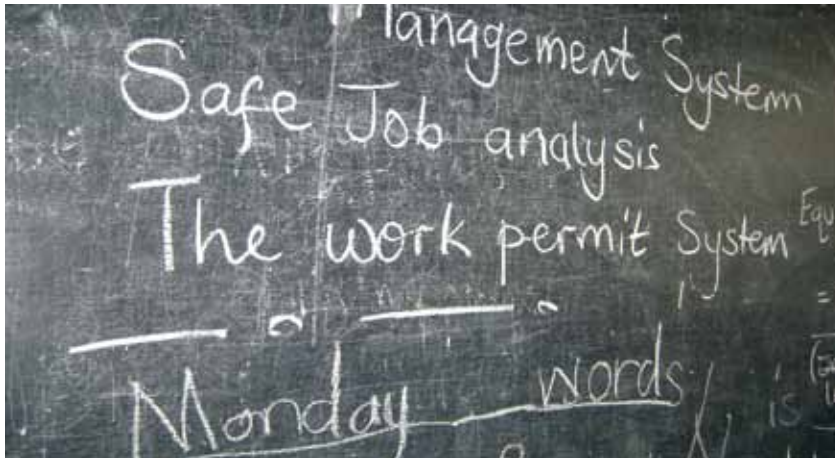 Management System
Safe Job analysis
The work permit System
Monday words
is